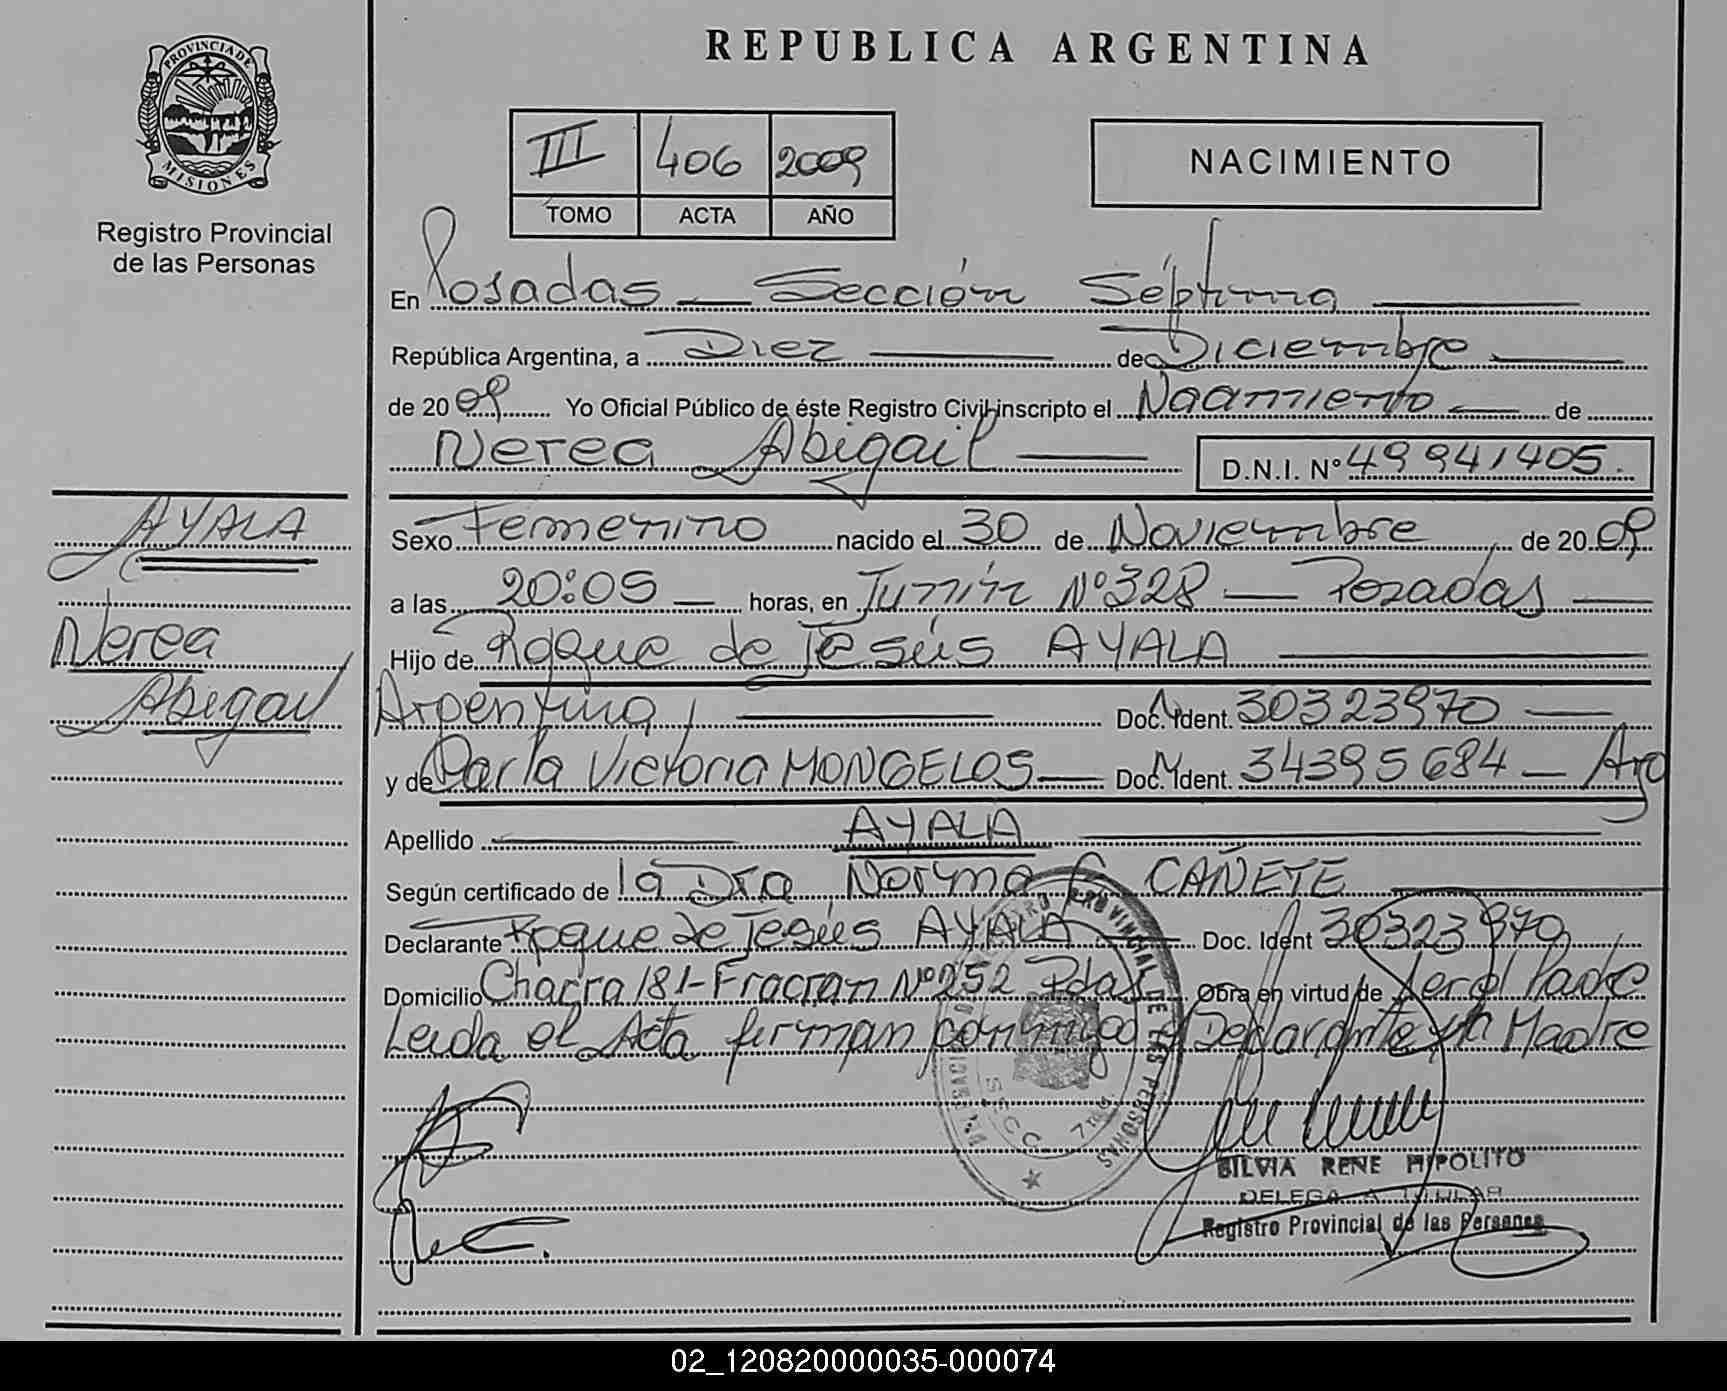 REPUBLICA ARGENTINA
PROVINCIA DE
MISIONES
Registro Provincial
de las Personas
III 406 2009
TOMO ACTA AÑO
NACIMIENTO
En Posadas — Sección Séptima
República Argentina, a Diez de Diciembre
de 2009 Yo Oficial Público de éste Registro Civil inscripto el Nacimiento de
Nerea Abigail
D.N.I. Nº 49941405.
AYALA
Nerea
Abigail
Sexo Femenino nacido el 30 de Noviembre de 2009
a las 20:05 — horas, en Junín Nº 328 — Posadas —
Hijo de Roque de Jesús AYALA
Argentina, Doc. Ident. 30323970 —
y de Carla Victoria MONGELOS — Doc. Ident. 34395684 — Arg
Apellido AYALA
Según certificado de la Dra Norma CAÑETE
Declarante Roque de Jesús AYALA Doc. Ident 30323970
Domicilio Chacra 181-Fracran Nº 252 Pdas Obra en virtud de ser el Padre
Leida el Acta firman conmigo el Declarante y la Madre
PROVINCIAL DE LAS PERSONAS
SECC. 7ma.
SILVIA RENE HIPOLITO
DELEGADA TITULAR
Registro Provincial de las Personas
02_120820000035-000074